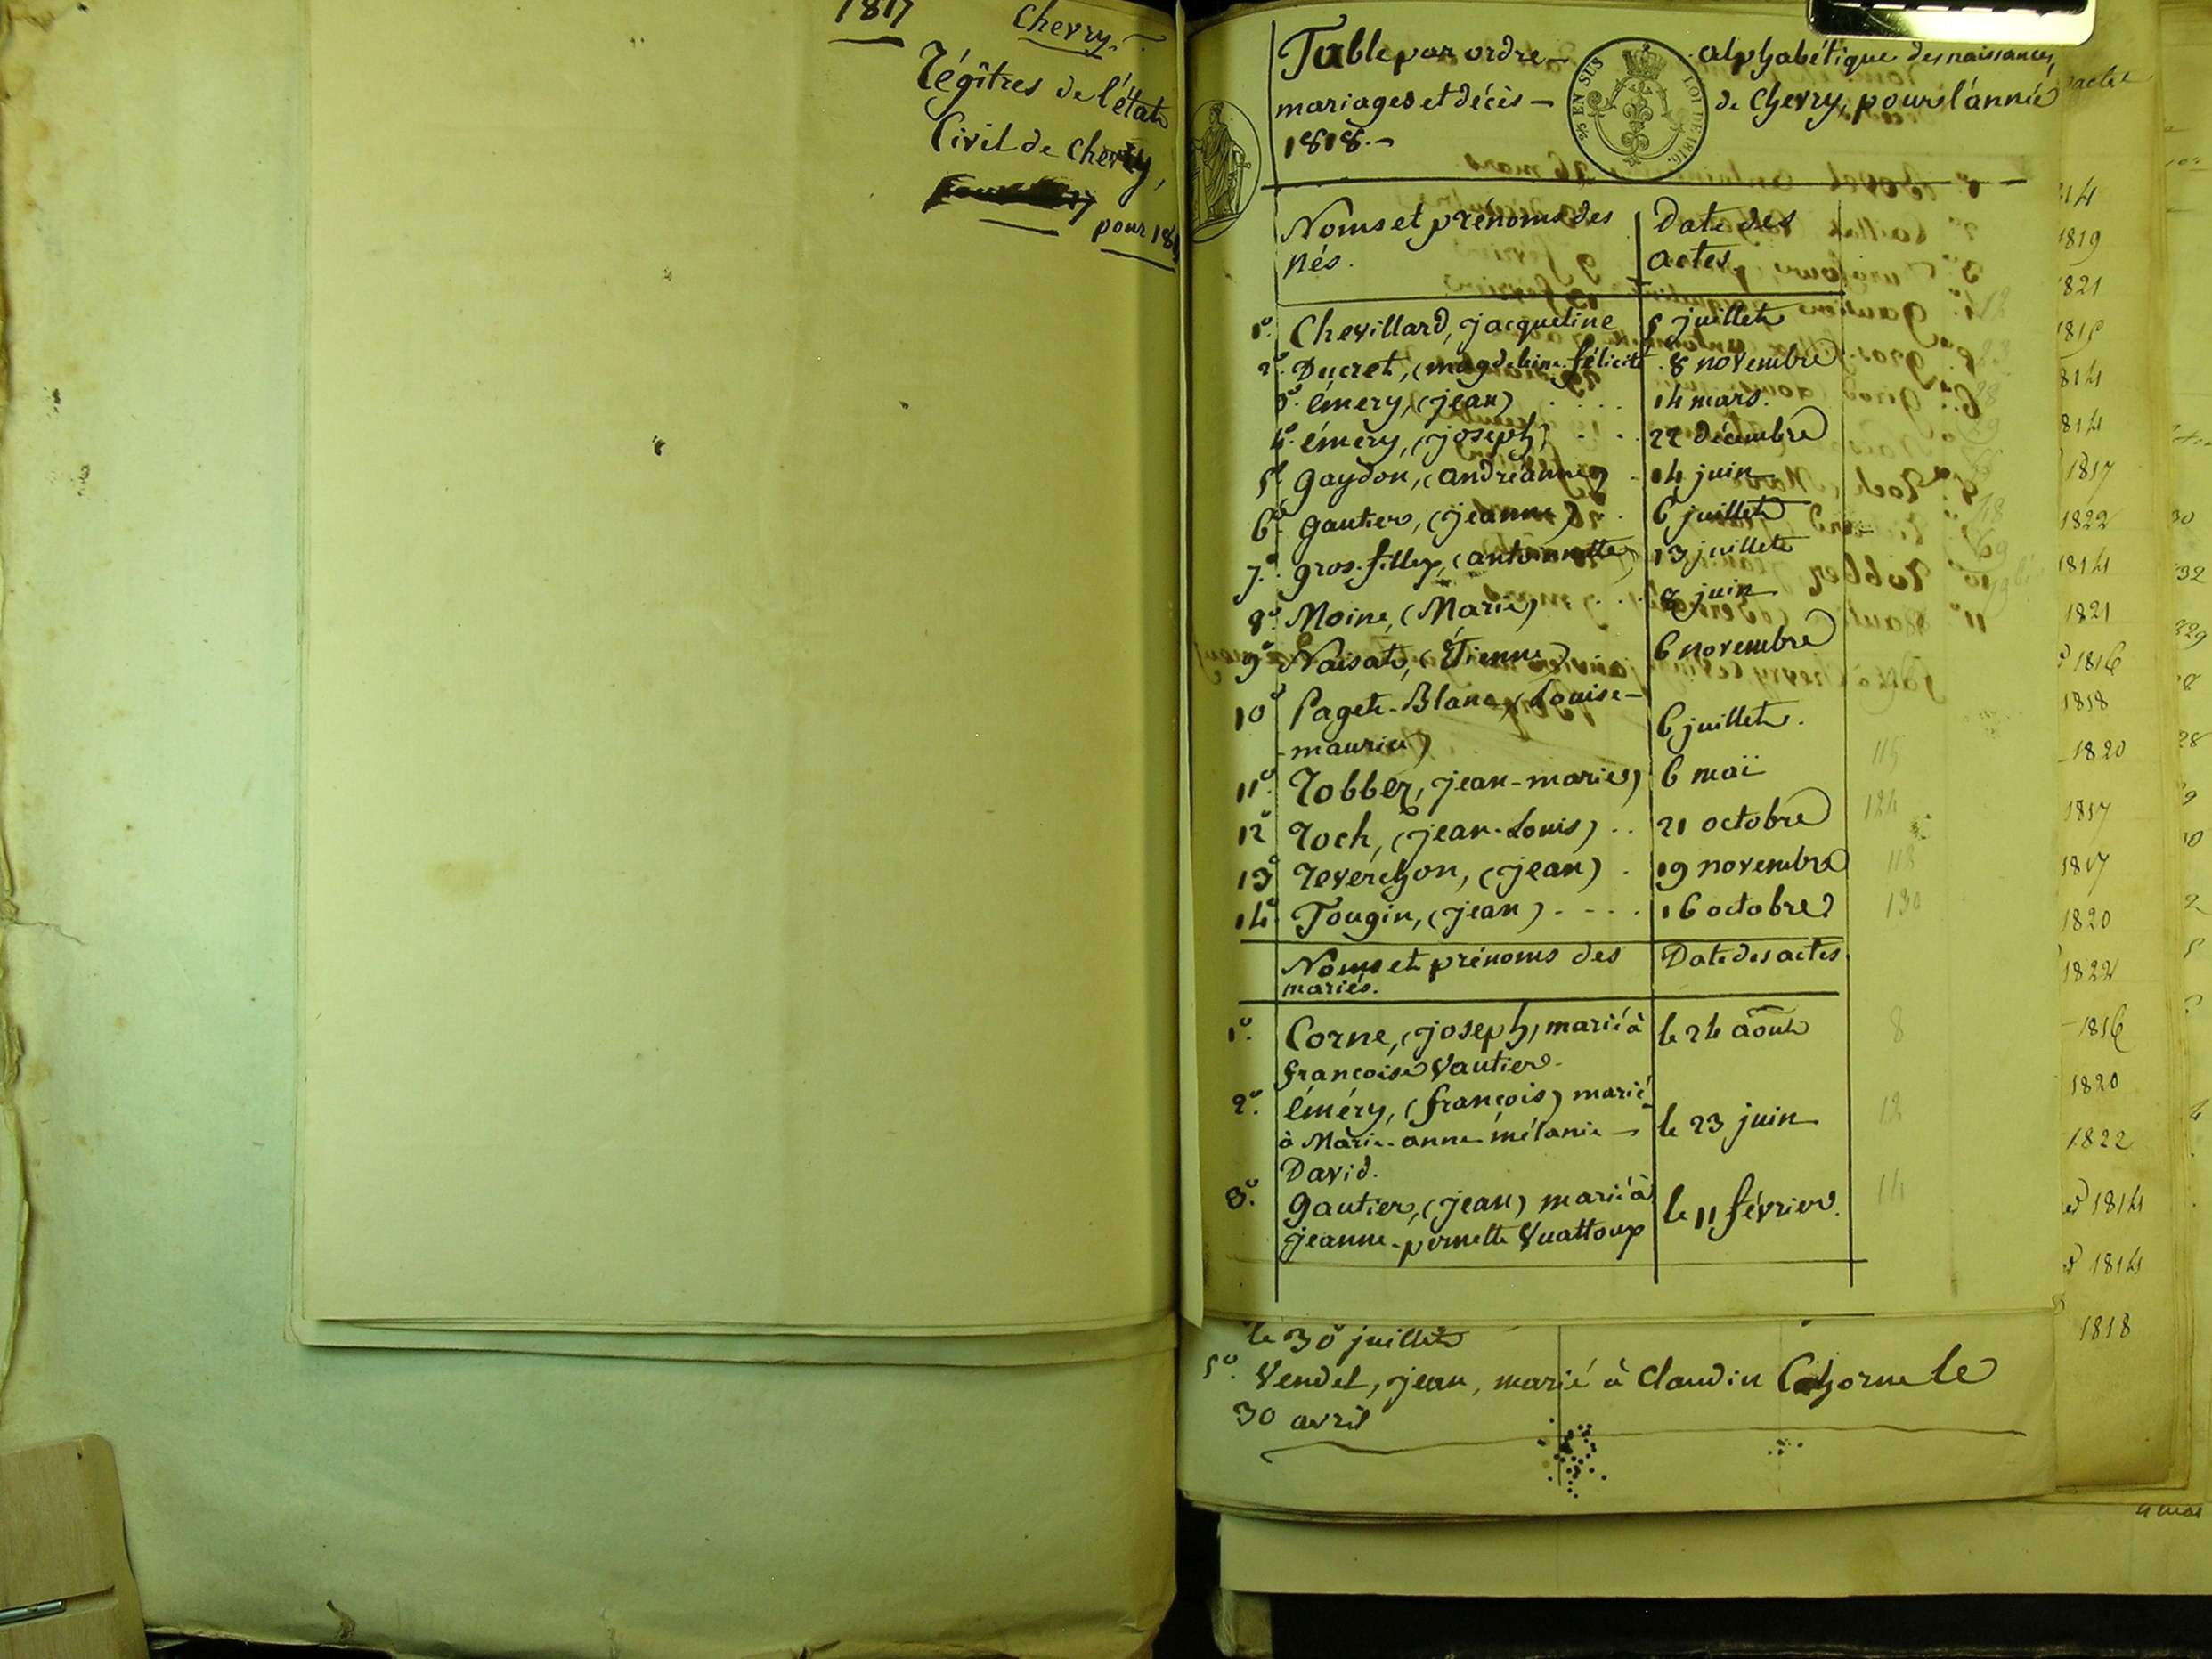 1817
Chevry.
Régîtres de l'état
Civil de Chevry,
pour 181
Table par ordre alphabétique des naissances,
mariages et décès de Chevry, pour l'année
1818.
25 EN SUS LOI DE 1816.
Noms et prénoms des Date des
nés. actes.
1º. Chevillard, jacqueline juillet
2º. Ducret, (magdeleine félicité 8 novembre
3º. éméry, (jean) 14 mars.
4º. éméry, (joseph) 22 décembre
5º. gaydon, (andréanne) 14 juin
6º. gautier, (jeanne) 6 juillet
7º. gros-filley, (antoinette) 13 juillet
8º. Moine, (Marie) 8 juin
9º. Naisat, (Étienne) 6 novembre
10º Paget-Blanc, (Louise-
maurice) 6 juillet.
11º. Robbez, jean-marie) 6 maï
12º Roch, (jean-Louis) 21 octobre
13º Reverchon, (jean) 19 novembre
14º Tougin, (jean) 16 octobre
Noms et prénoms des Date des actes.
mariés.
1º. Corne, (joseph) marié à le 24 août
françoise Vautier.
2º. éméry, (françois) marié
à Marie-anne mélanie le 23 juin
David.
3º. gautier, (jean) marié à le 11 février.
jeanne-pernette Vuattoup
le 30 juillet
5º. Vendel, jean, marié à Claudin le
30 avril
1819
1821
1817
1822
1814
1821
1816
1818
1820
1817
1817
1820
1822
1816
1820
1822
1814
1814
1818